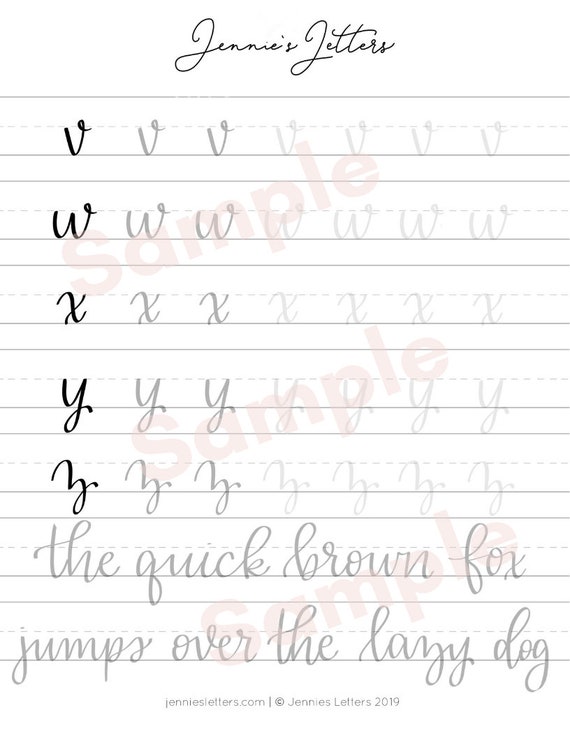 Jennie's Letters
v v v v v v v
w w w w w w w
Sample
x x x x x x x
y y y y y y y
Sample
z z z z z z z
the quick brown fox
Sample
jumps over the lazy dog
jenniesletters.com | © Jennies Letters 2019